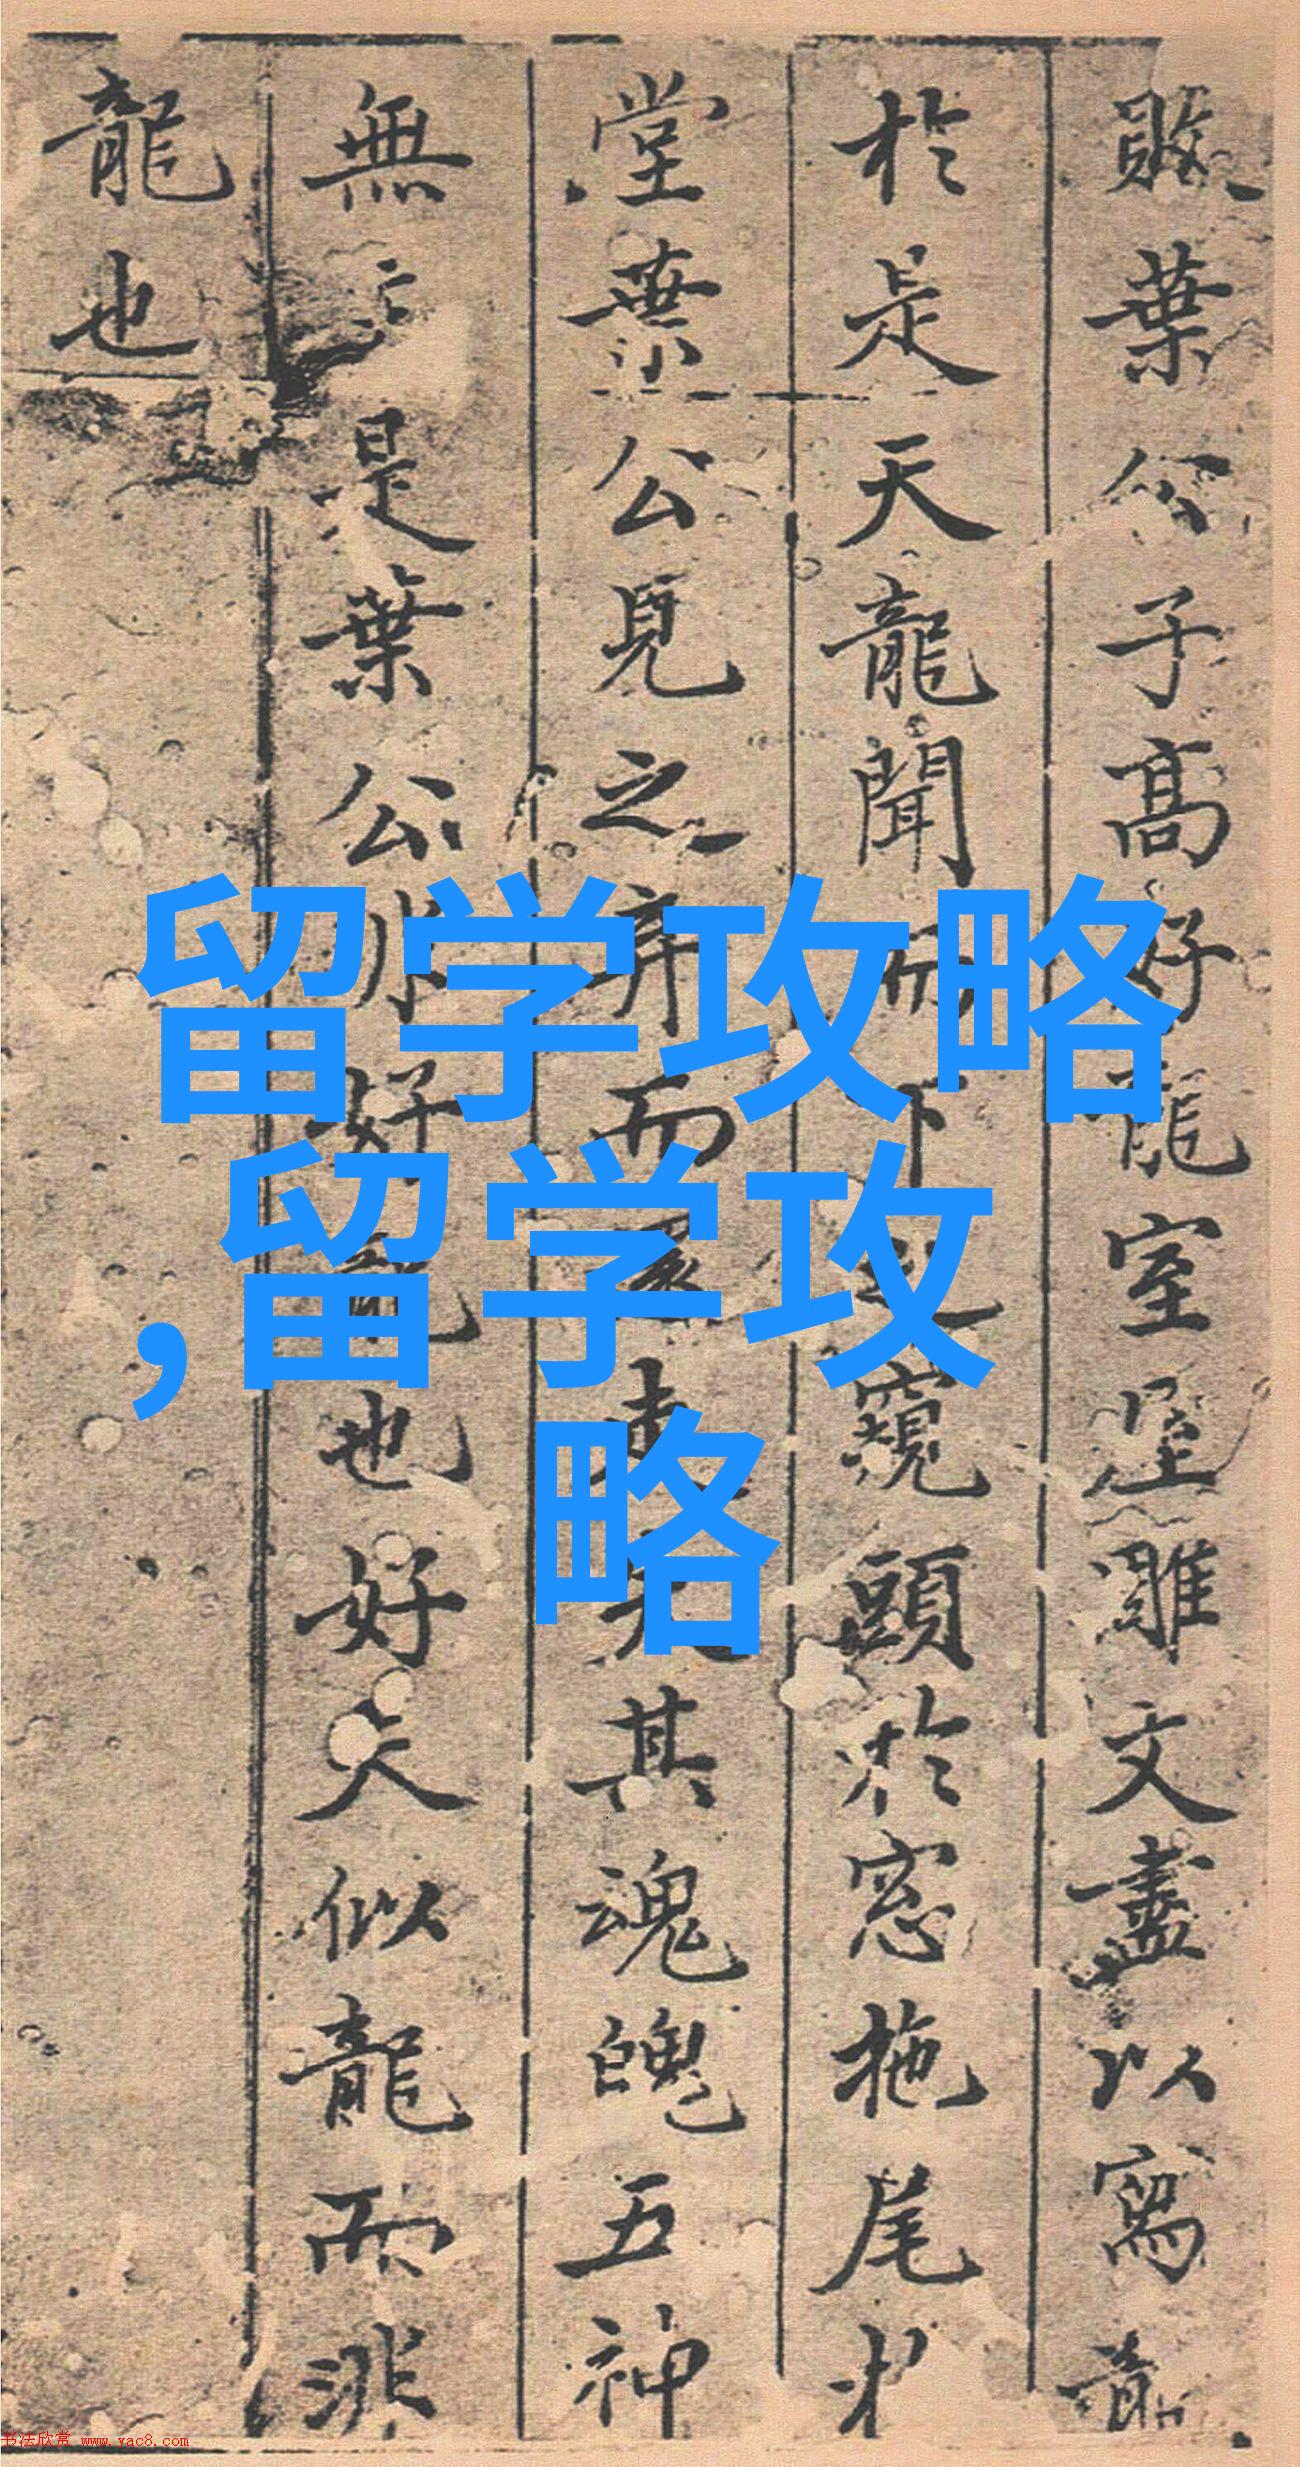 敗葉公子高好龍室屋雕文盡以寫龍
於是天龍聞而下之窺頭於窓拖尾於
堂葉公見之弃而還走失其魂魄五神
無主是葉公非好龍也好夫似龍而非
龍也
留学攻略
,留学攻
略
书法欣赏 www.yac8.com